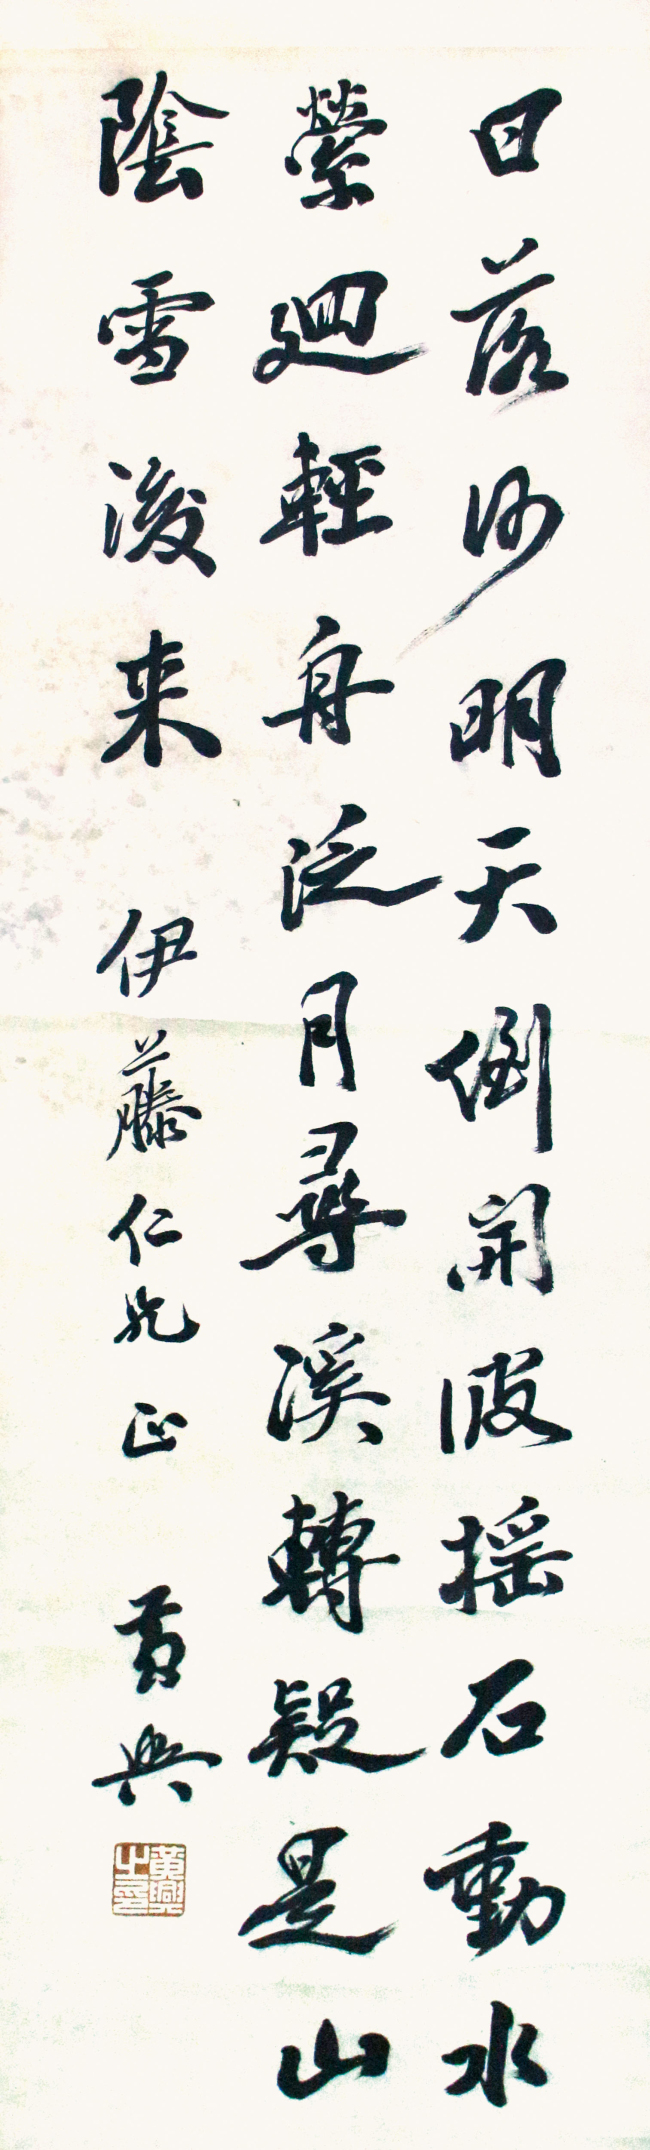 日落沙明天倒開波揺石動水
縈廻輕舟泛月尋溪轉疑是山
陰雪後来 伊藤仁兄正 黄興
黃興之印